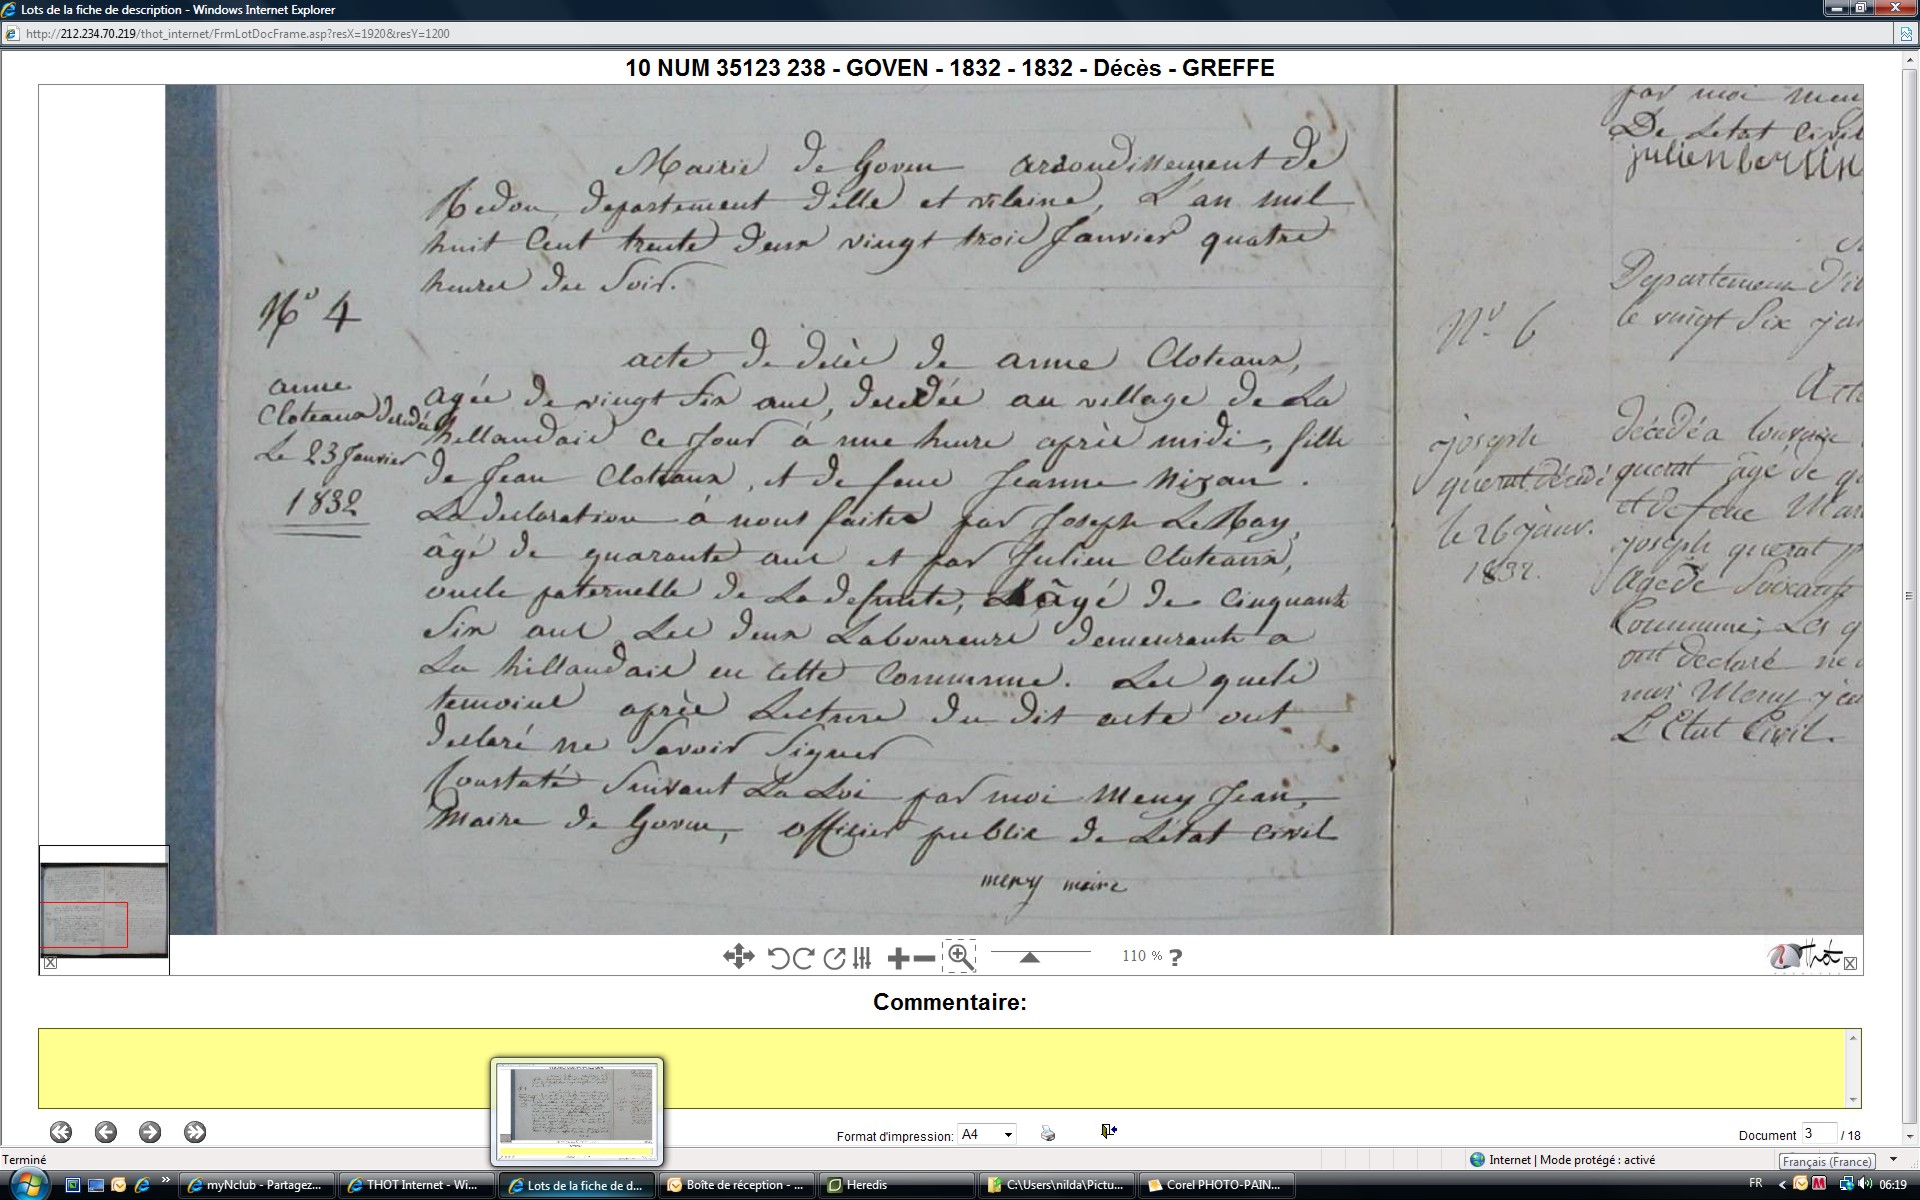 Lots de la fiche de description - Windows Internet Explorer
http://212.234.70.219/thot_internet/FrmLotDocFrame.asp?resX=1920&resY=1200
10 NUM 35123 238 - GOVEN - 1832 - 1832 - Décès - GREFFE
Mairie de Goven arrondissement de
Redon, departement d'ille et vilaine, L'an mil
huit Cent trente deux vingt trois Janvier quatre
heures du Soir.
N° 4
anne
Cloteaux décédé
Le 23 Janvier
1832
acte de décès de anne Cloteaux,
agée de vingt Six ans, decedée au village de La
hillandais ce Jour à une heure après midi, fille
de Jean Cloteaux, et de feue Jeanne Nizan.
La declaration à nous faite par Joseph Le Ray,
âgé de quarante ans et par Julien Cloteaux,
oncle paternelle de La defunte, âgé de cinquante
Six ans Les deux Laboureurs demeurants a
La hillandais en Cette Commune. Les quels
temoins après Lecture du dit acte ont
declaré ne Savoir Signer
Constaté Suivant La Loi par moi Meny Jean,
Maire de Goven, officier public de L'état civil
meny maire
par moi
De Letat Civil
julien bertin
N° 6
joseph
querat décédé
le 26 janv.
1832.
Departement d'il
le vingt Six jan
Act
décédé a louvain
querat âgé de q
et de feue Mar
joseph querat p
Agé de Soixante
Commune; Les q
ont declaré ne
moi Meny jea
L'Etat Civil.
110 % ?
Thot
Commentaire:
Format d'impression: A4
Document 3 / 18
Terminé
Internet | Mode protégé : activé
Français (France)
myNclub - Partagez...
THOT Internet - Wi...
Lots de la fiche de d...
Boîte de réception - ...
Heredis
C:\Users\nilda\Pictu...
Corel PHOTO-PAIN...
FR
06:19